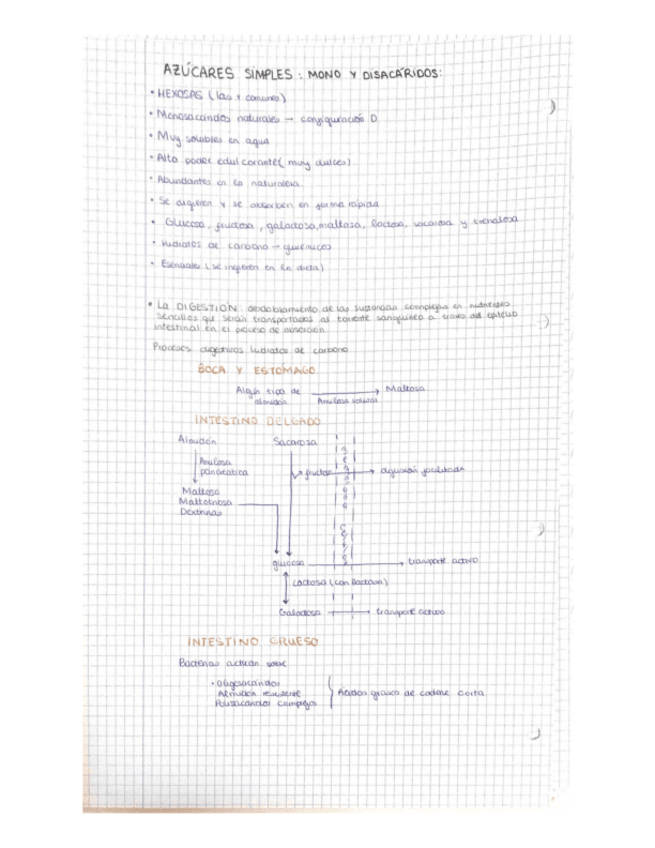 AZÚCARES SIMPLES: MONO Y DISACÁRIDOS:
• HEXOSAS (las + comunes)
• Monosacáridos naturales → configuración D
• Muy solubles en agua
• Alto poder edulcorante (muy dulces)
• Abundantes en la naturaleza
• Se digieren y se absorben en forma rápida
• Glucosa, fructosa, galactosa, maltosa, lactosa, sacarosa y trehalosa
• Hidratos de carbono → químicos
• Esenciales (se ingieren en la dieta)
• La DIGESTIÓN: desdoblamiento de las sustancias complejas en nutrientes
sencillos que serán transportados al torrente sanguíneo a través del epitelio
intestinal en el proceso de absorción.
Procesos digestivos hidratos de carbono
BOCA Y ESTÓMAGO
Algún tipo de almidón → Maltosa
Amilasa salival
INTESTINO DELGADO
Almidón Sacarosa
Amilasa
pancreática
fructosa → difusión facilitada
Maltosa
Maltotriosa
Dextrinas
glucosa → transporte activo
Lactosa (con lactasa)
Galactosa → transporte activo
INTESTINO GRUESO
Bacterias actúan sobre
• Oligosacáridos
Almidón resistente
Polisacáridos complejos
Ácidos grasos de cadena corta